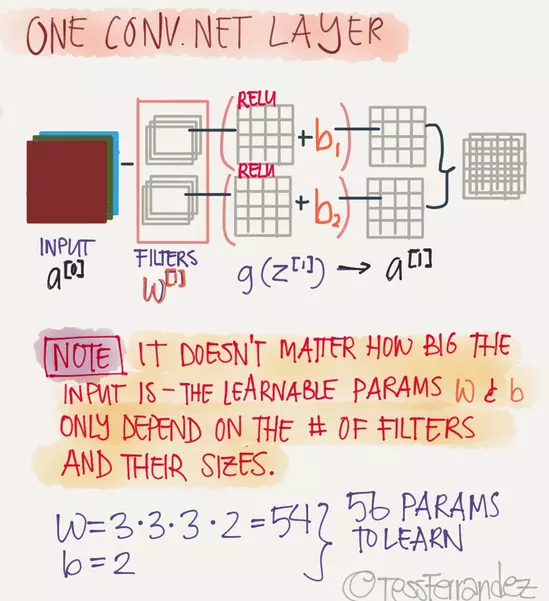 ONE CONV.NET LAYER
RELU
+b₁
RELU
+b₂
INPUT
a[0]
FILTERS
W[1]
g(z[1]) → a[1]
NOTE IT DOESN'T MATTER HOW BIG THE
INPUT IS – THE LEARNABLE PARAMS W & b
ONLY DEPEND ON THE # OF FILTERS
AND THEIR SIZES.
W=3·3·3·2=54 } 56 PARAMS
b=2 TO LEARN
©TessFerrandez